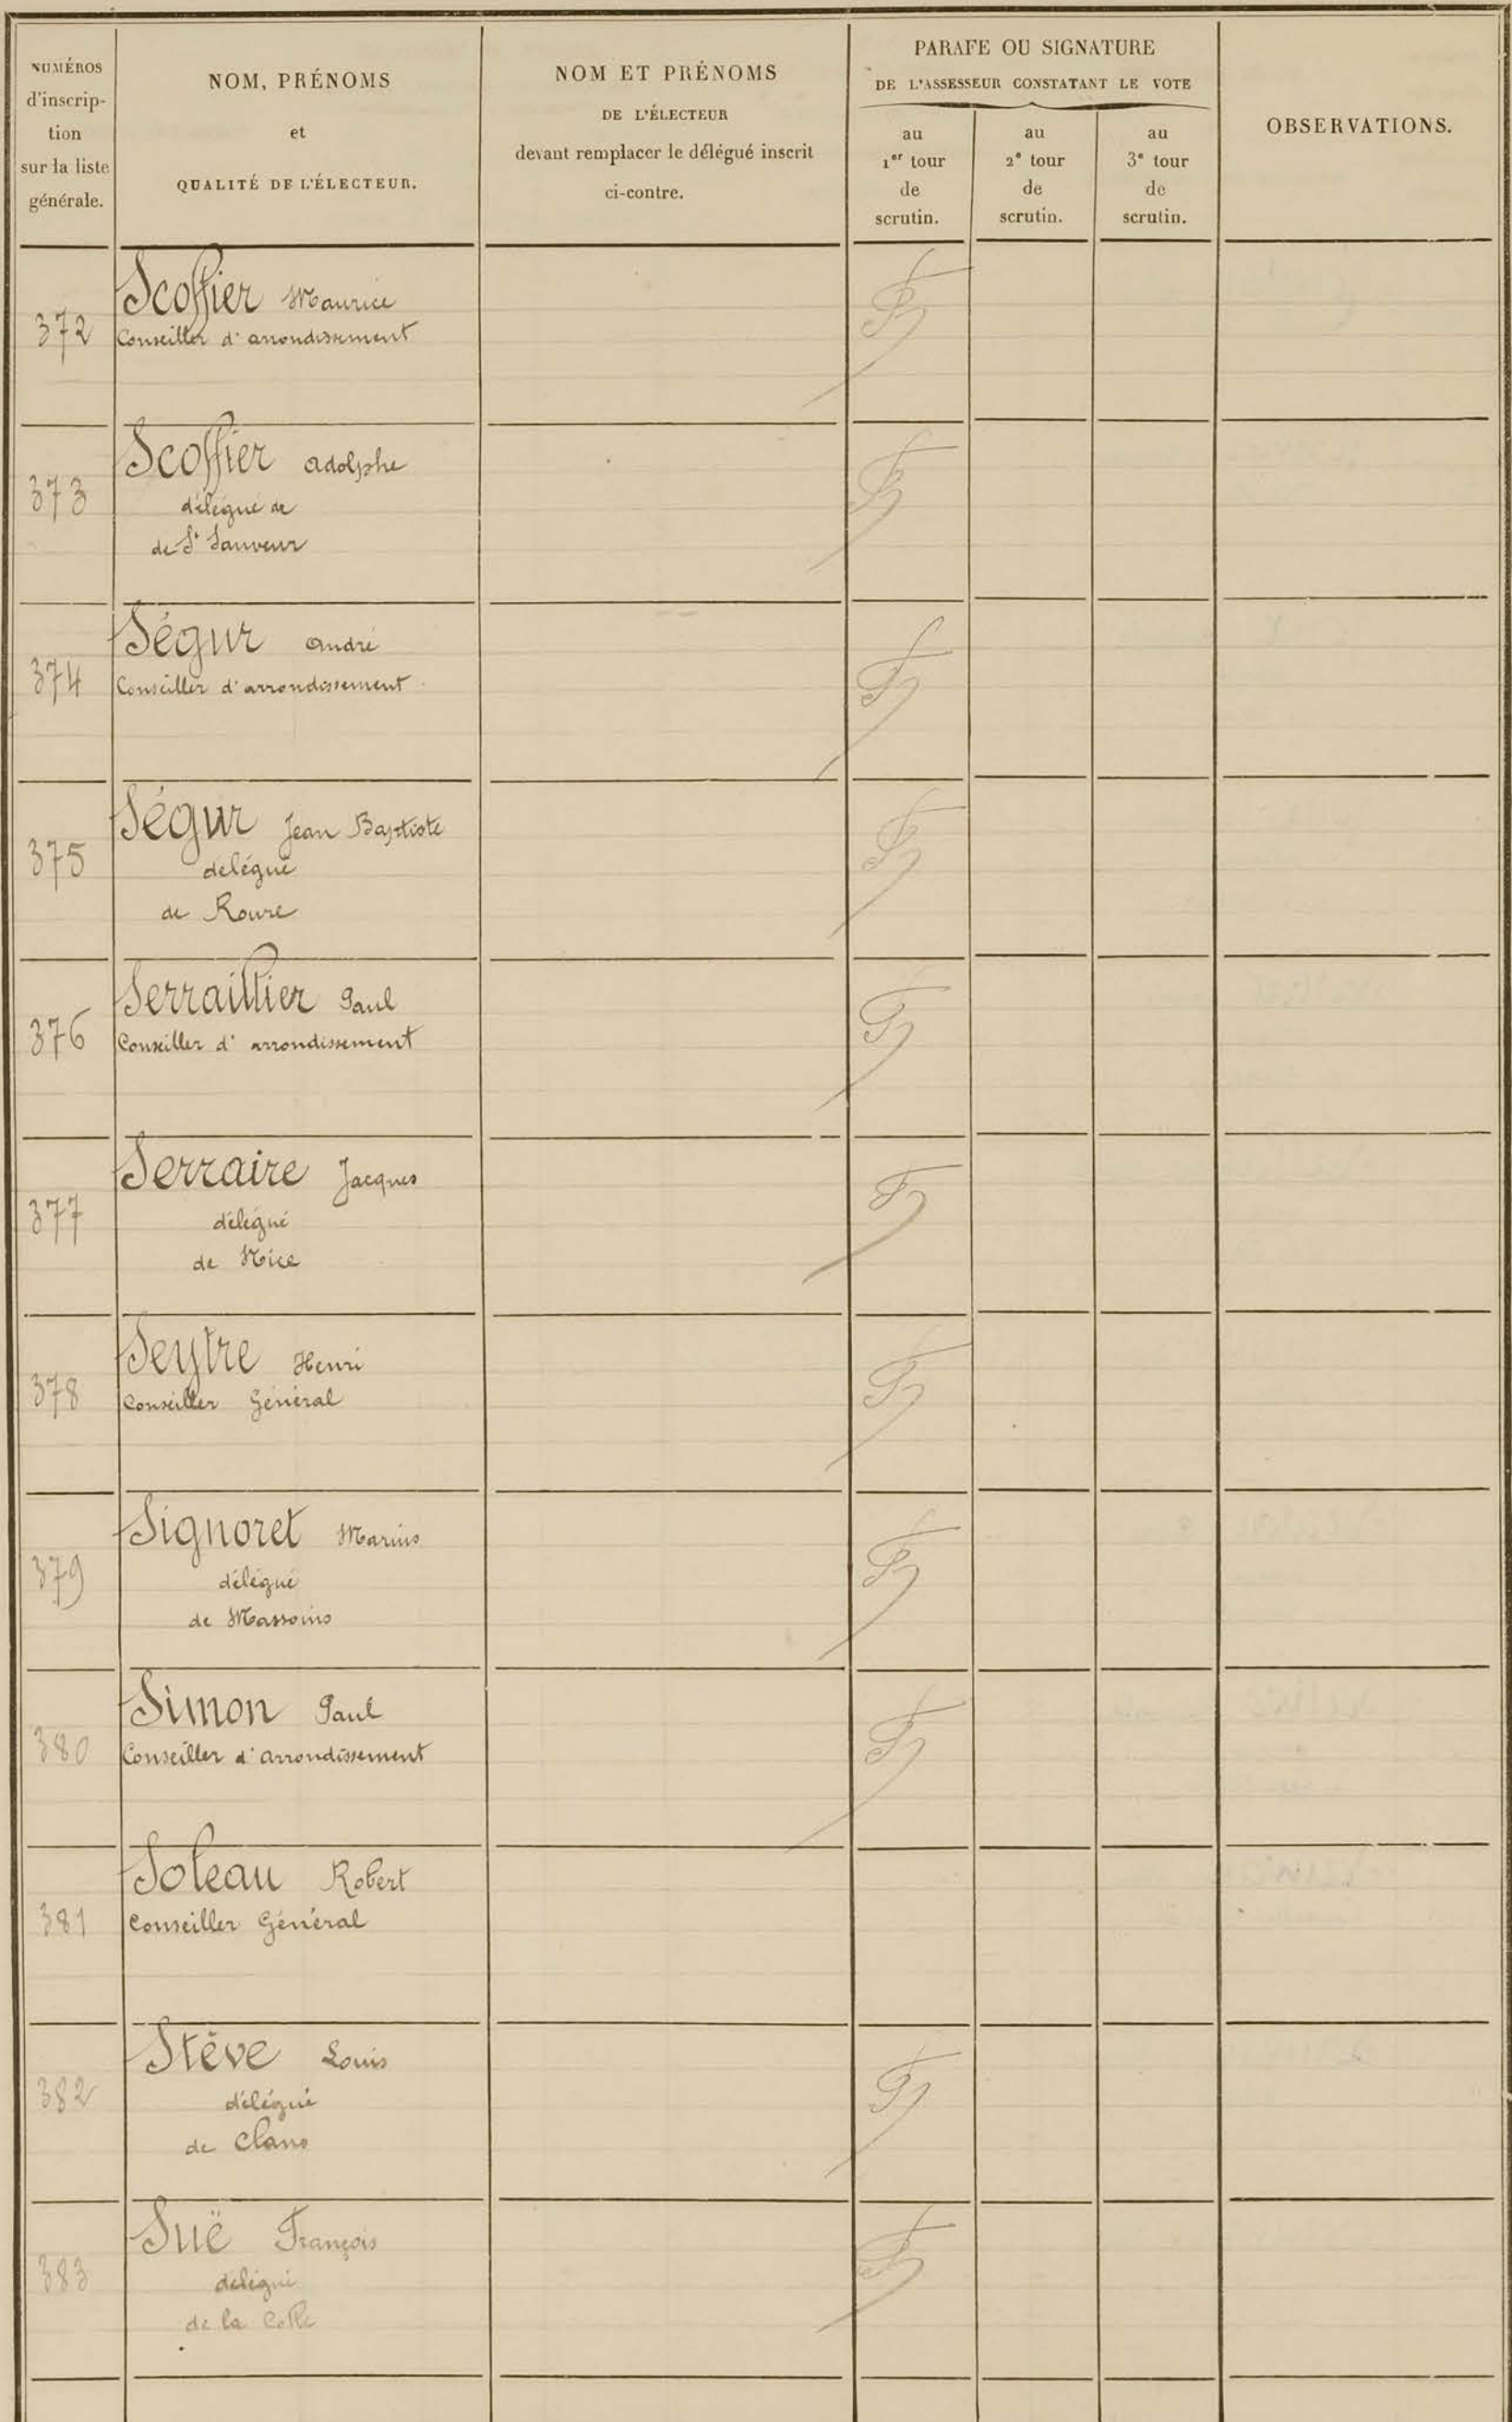 NUMÉROS
d'inscrip-
tion
sur la liste
générale.
NOM, PRÉNOMS
et
QUALITÉ DE L'ÉLECTEUR.
NOM ET PRÉNOMS
DE L'ÉLECTEUR
devant remplacer le délégué inscrit
ci-contre.
PARAFE OU SIGNATURE
DE L'ASSESSEUR CONSTATANT LE VOTE
au
1er tour
de
scrutin.
au
2e tour
de
scrutin.
au
3e tour
de
scrutin.
OBSERVATIONS.
372 Scoffier Maurice
Conseiller d'arrondissement
373 Scoffier Adolphe
délégué de
de St Sauveur
374 Ségur André
Conseiller d'arrondissement
375 Ségur Jean Baptiste
délégué
de Roure
376 Serraillier Paul
Conseiller d'arrondissement
377 Serraire Jacques
délégué
de Nice
378 Seytre Henri
Conseiller Général
379 Signoret Marius
délégué
de Massoins
380 Simon Paul
Conseiller d'arrondissement
381 Soleau Robert
Conseiller Général
382 Stève Louis
délégué
de Clans
383 Suë François
délégué
de la Colle